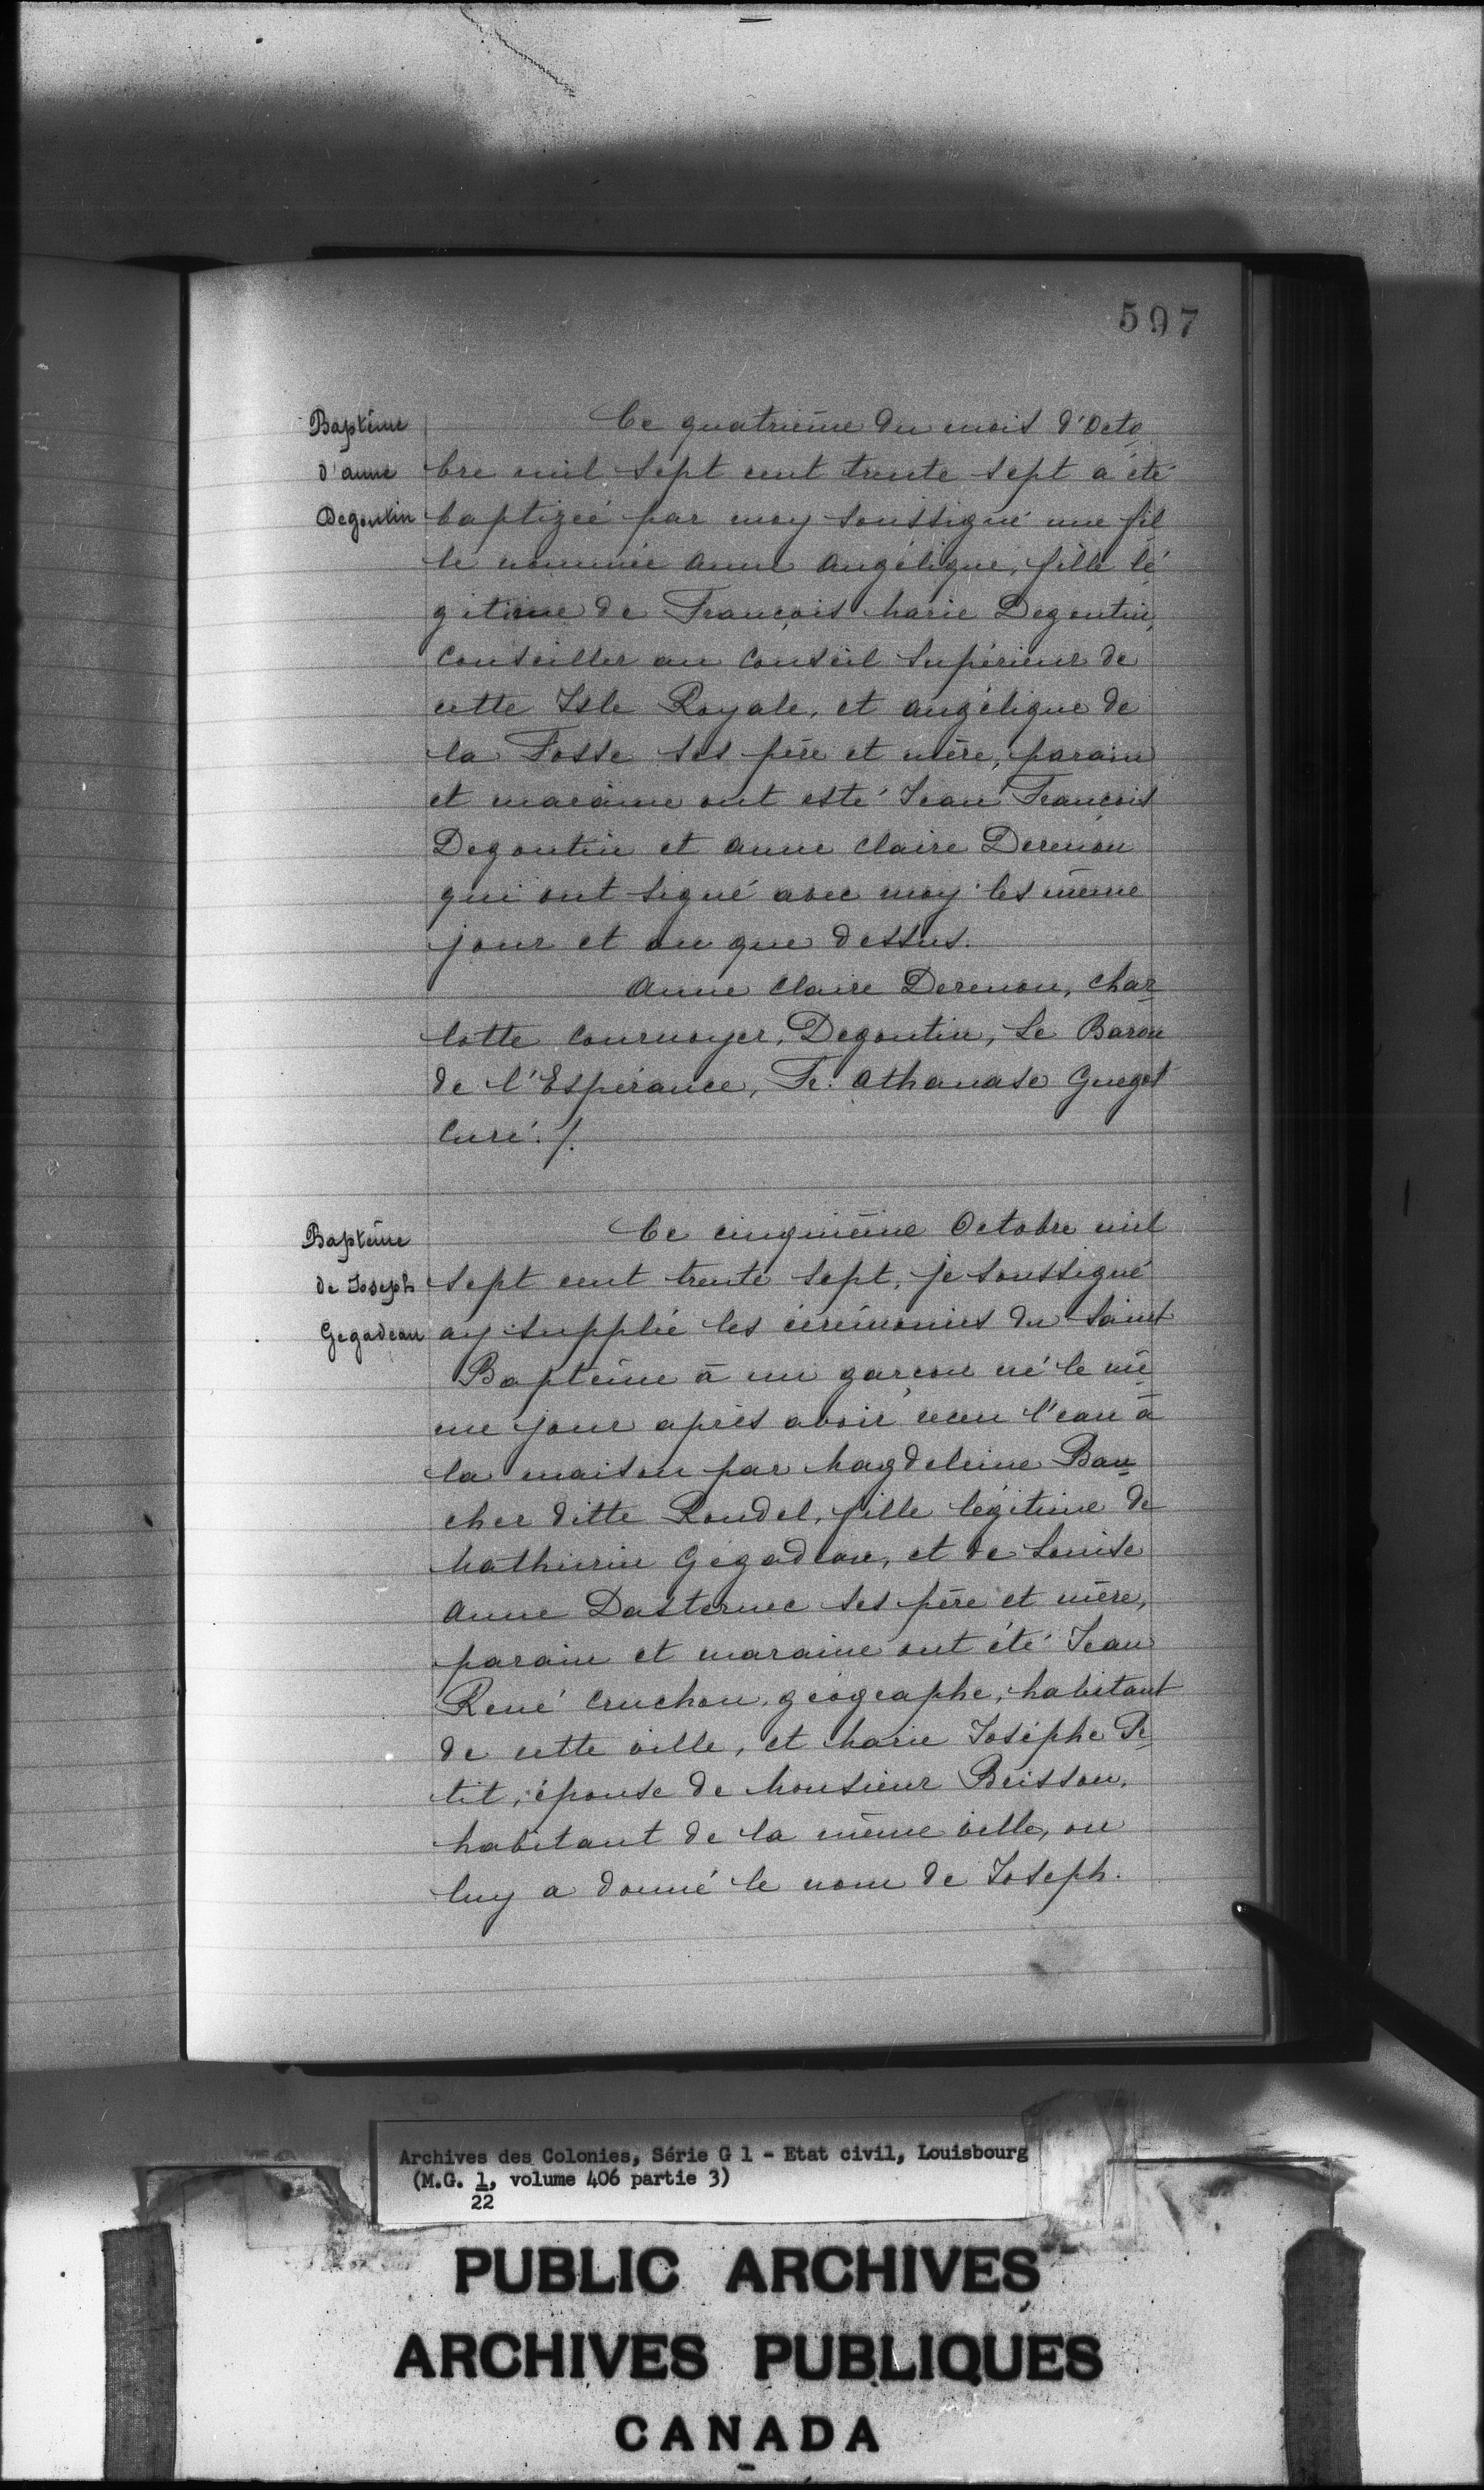 597
Baptême
d'anne
Degoutin
Ce quatrième du mois d'Octo
bre mil sept cent trente sept a été
baptizeé par moy soussigné une fil
le nommée anne angélique, fille lé
gitime de François Marie Degoutin,
Conseiller au Conseil Supérieur de
cette Isle Royale, et angélique de
la Fosse ses père et mère, parain
et maraine ont esté Jean François
Degoutin et anne Claire Derenon
qui ont signé avec moy les même
jour et an que dessus.
Anne Claire Derenon, Char
lotte Cournoyer, Degoutin, Le Baron
de l'Espérance, Fr. Athanase Guegot
Curé ./.
Baptême
de Joseph
Gegadeau
Ce cinquième Octobre mil
sept cent trente sept, je soussigné
ay supplié les cérémonies du Saint
Baptême à un garçon né le mê
me jour après avoir receu l'eau à
la maison par Magdeleine Bau
cher ditte Rondel, fille légitime de
Mathurin Gégadeau, et de Louise
Anne Dasternec ses père et mère,
parain et maraine ont été Jean
René Cruchon, géographe, habitant
de cette ville, et Marie Joséphe Pe
tit, épouse de Monsieur Brisson,
habitant de la même ville, on
luy a donné le nom de Joseph.
Archives des Colonies, Série G 1 - Etat civil, Louisbourg
(M.G. 1, volume 406 partie 3)
22
PUBLIC ARCHIVES
ARCHIVES PUBLIQUES
CANADA